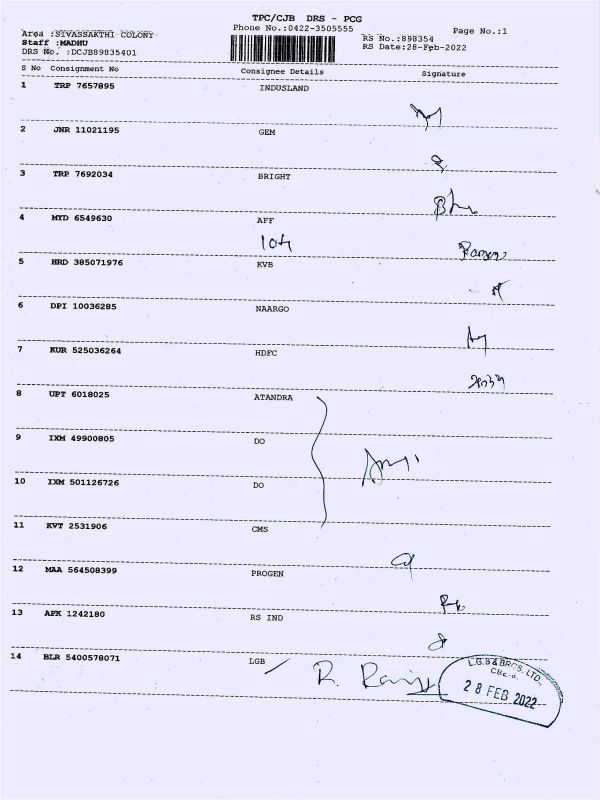 TPC/CJB DRS - PCG
Phone No.:0422-3505555
Page No.:1
Area :SIVASSAKTHI COLONY
Staff :MADHU
RS No.:898354
DRS No. :DCJB89835401
RS Date:28-Feb-2022
S No Consignment No Consignee Details Signature
1 TRP 7657895 INDUSLAND
2 JNR 11021195 GEM
3 TRP 7692034 BRIGHT
4 MYD 6549630 AFF
5 HRD 385071976 KVB
6 DPI 10036285 NAARGO
7 KUR 525036264 HDFC
8 UPT 6018025 ATANDRA
9 IXM 49900805 DO
10 IXM 501126726 DO
11 KVT 2531906 CMS
12 MAA 564508399 PROGEN
13 APK 1242180 RS IND
14 BLR 5400578071 LGB
L.G.B & BROS. LTD.,
28 FEB 2022